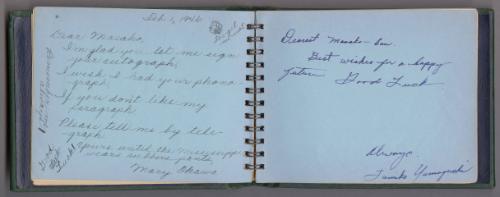 Feb. 1, 1946
Dear Masako,
I'm glad you let me sign
your autograph;
I wish I had your phono-
graph;
If you don't like my
paragraph
Please tell me by tele-
graph.
Yours until the Mississippi
wears rubber pants,
Mary Okawa
Always
Good
Luck!
Dearest Masako-San
Best wishes for a happy
future Good Luck
Always
Yamaguchi